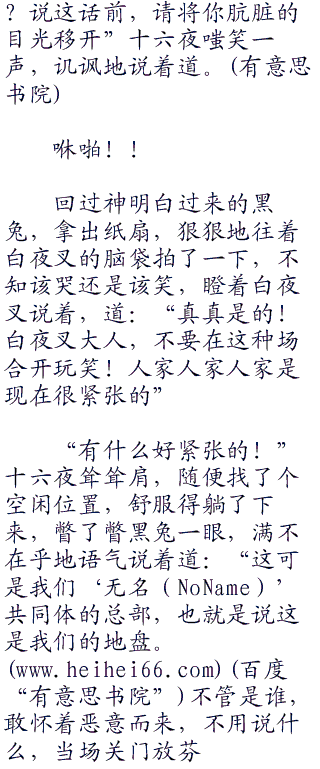 ？说这话前，请将你肮脏的
目光移开”十六夜嗤笑一
声，讥讽地说着道。(有意思
书院)
咻啪！！
回过神明白过来的黑
兔，拿出纸扇，狠狠地往着
白夜叉的脑袋拍了一下，不
知该哭还是该笑，瞪着白夜
叉说着，道：“真真是的！
白夜叉大人，不要在这种场
合开玩笑！人家人家人家是
现在很紧张的”
“有什么好紧张的！”
十六夜耸耸肩，随便找了个
空闲位置，舒服得躺了下
来，瞥了瞥黑兔一眼，满不
在乎地语气说着道：“这可
是我们‘无名（NoName）’
共同体的总部，也就是说这
是我们的地盘。
(www.heihei66.com)(百度
“有意思书院”)不管是谁，
敢怀着恶意而来，不用说什
么，当场关门放芬